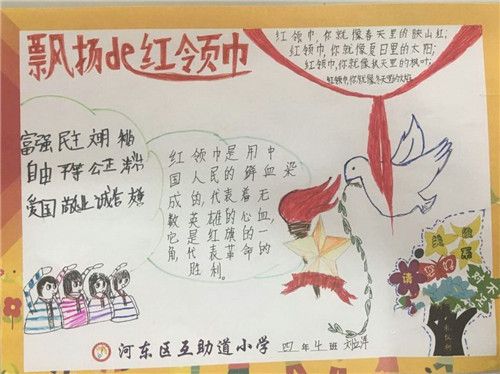 飘扬de红领巾
红领巾,你就像春天里的映山红;
红领巾,你就像夏日里的太阳;
红领巾,你就像秋天里的枫叶;
红领巾,你就像冬天里的火焰
富强 民主 文明 和谐
自由 平等 公正 法治
爱国 敬业 诚信 友善
红领巾是用中
国人民的鲜血染
成的,代表着无
数英雄的心血,
它是红旗的一
角,代表革命的
胜利。
请
河东区互助道小学 四年4班